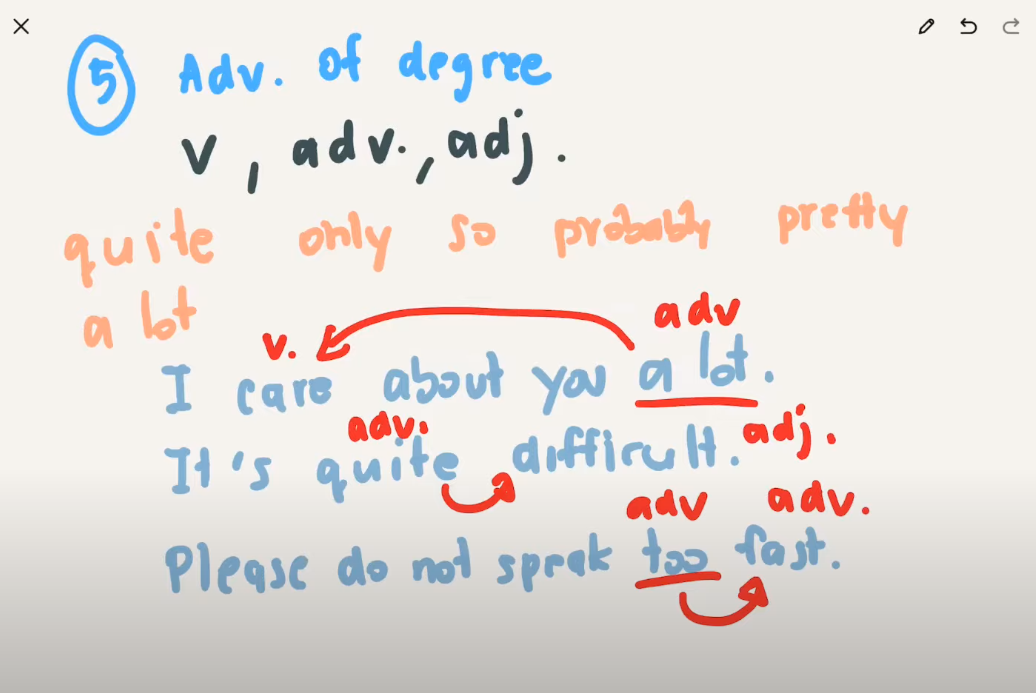 5 Adv. of degree
v, adv., adj.
quite only so probably pretty
a lot
v. adv
I care about you a lot.
adv. adj.
It's quite difficult.
adv adv.
Please do not speak too fast.